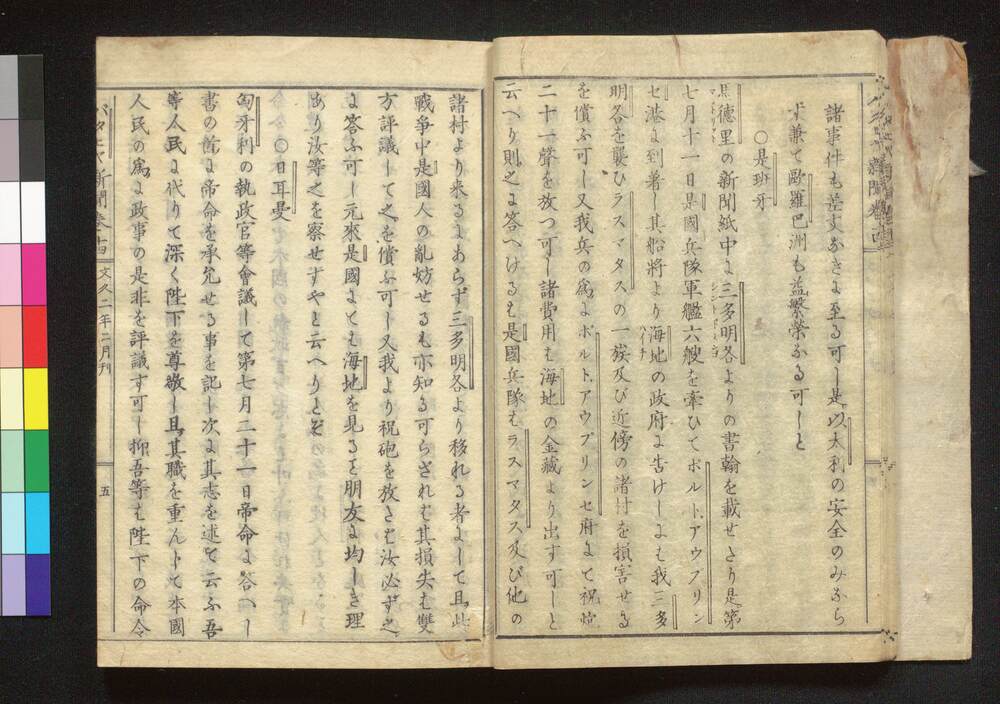 諸事件も差支なきに至る可し是以太利の安全のみなら
ず兼て歐羅巴洲も益繁榮なる可しと
〇是班牙
馬德里の新聞紙中に三多明各よりの書翰を載せたり是第
七月十一日是國兵隊軍艦六艘を牽ひてポルトアウプリン
セ港に到著し其船將より海地の政府に告けしよは我三多
明各を襲ひラスマタスの一族及び近傍の諸村を損害せる
を償ふ可し又我兵の爲にポルトアウプリンセ府よて祝炮
二十一聲を放つ可し諸費用も海地の金藏より出す可しと
云へり則之よ答へけるも是國兵隊もラスマタス及び他の
諸村より来るよあらず三多明各より移れる者よして且此
戰爭中是國人の亂妨せるも亦知る可らざれも其損失も雙
方評議して之を償ふ可し又我より祝砲を放さむ汝必ず之
に答ふ可し元來是國よても海地を見る己朋友に均しき理
あり汝等之を察せすやと云へりとぞ
〇日耳曼
匈牙利の執政官等會議して第七月二十一日帝命に答へし
書の首に帝命を承允せる事を記し次に其志を述て云ふ吾
等人民に代りて深く陛下を尊敬し且其職を重んトて本國
人民の爲に政事の是非を評議す可し抑吾等も陛下の命令
バタビヤ新聞卷十四
文久二年二月刊
五